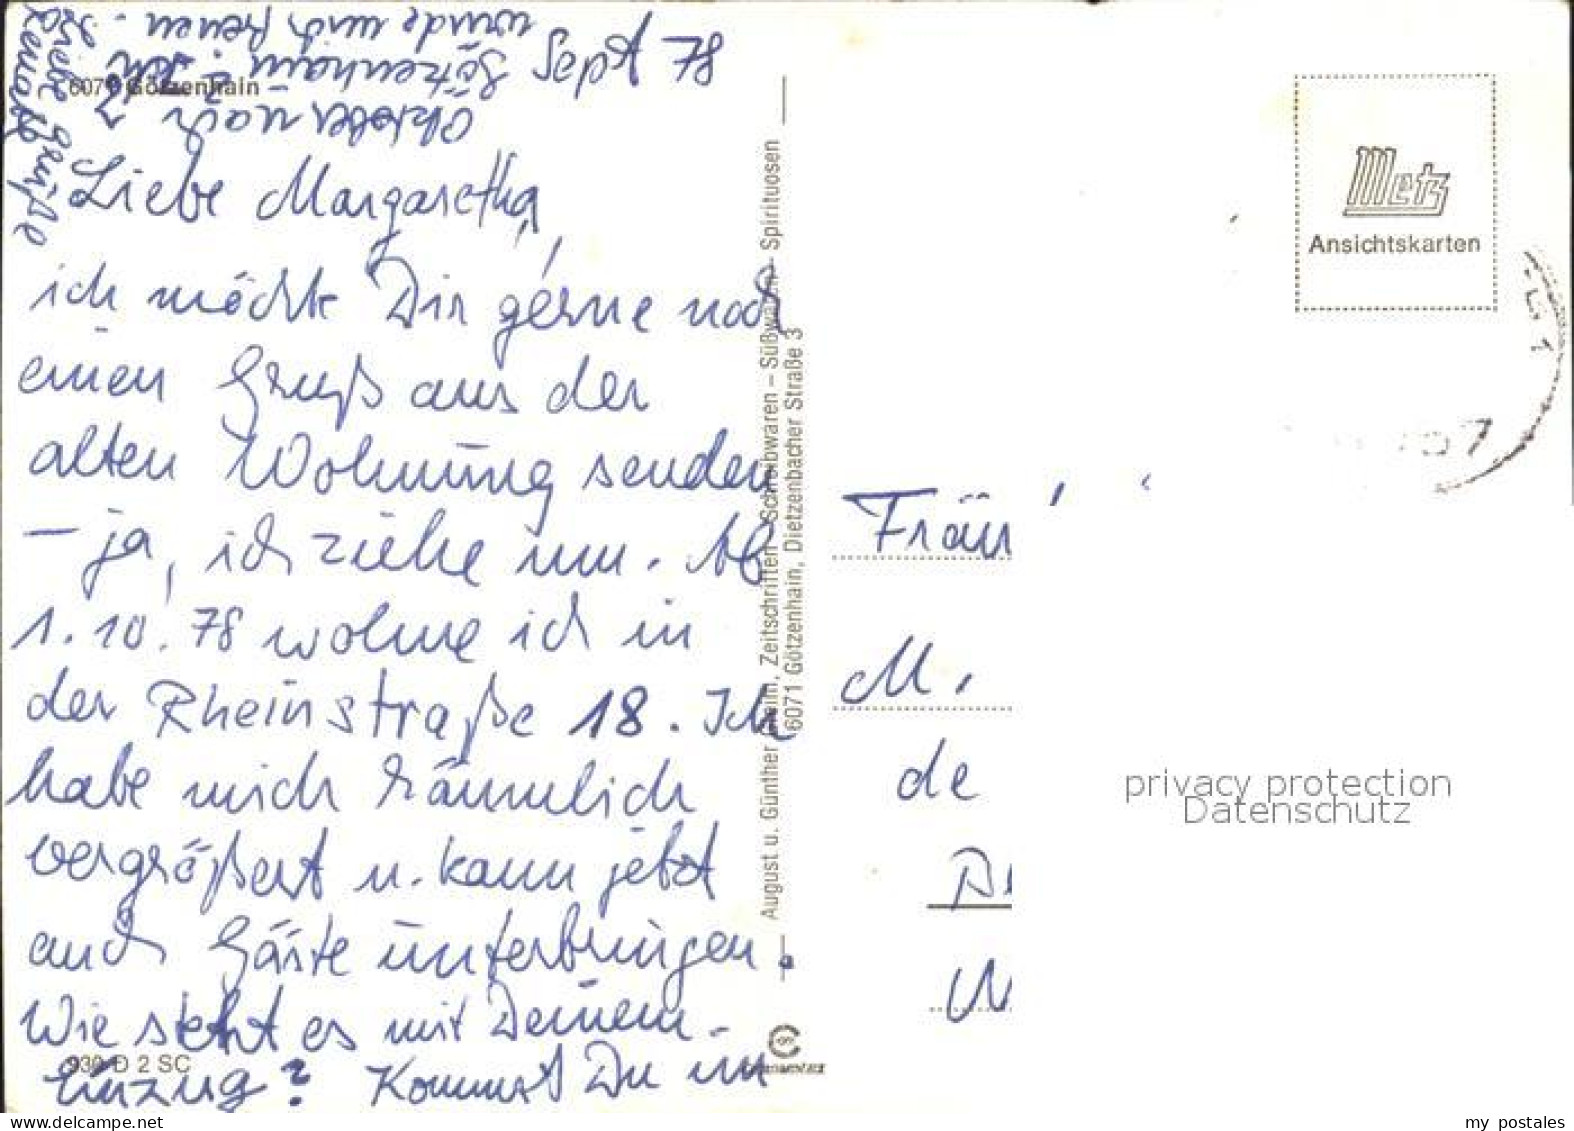 Sept 78
6071 Götzenhain
Liebe Margaretha,
ich möchte Dir gerne noch
einen Gruß aus der
alten Wohnung senden
– ja, ich ziehe um. Ab
1.10.78 wohne ich in
der Rheinstraße 18. Ich
habe mich räumlich
vergrößert u. kann jetzt
auch Gäste unterbringen.
Wie steht es mit Deinem
Einzug? Kommst Du im
Oktober nach
Götzenhain? Ich
würde mich freuen.
Liebe Grüße
Renate
930 D 2 SC
August u. Günther Zeitschriften - Schreibwaren – Süßwaren - Spirituosen
6071 Götzenhain, Dietzenbacher Straße 3
Metz
Ansichtskarten
Fräu
M.
de
privacy protection
Datenschutz
my postales